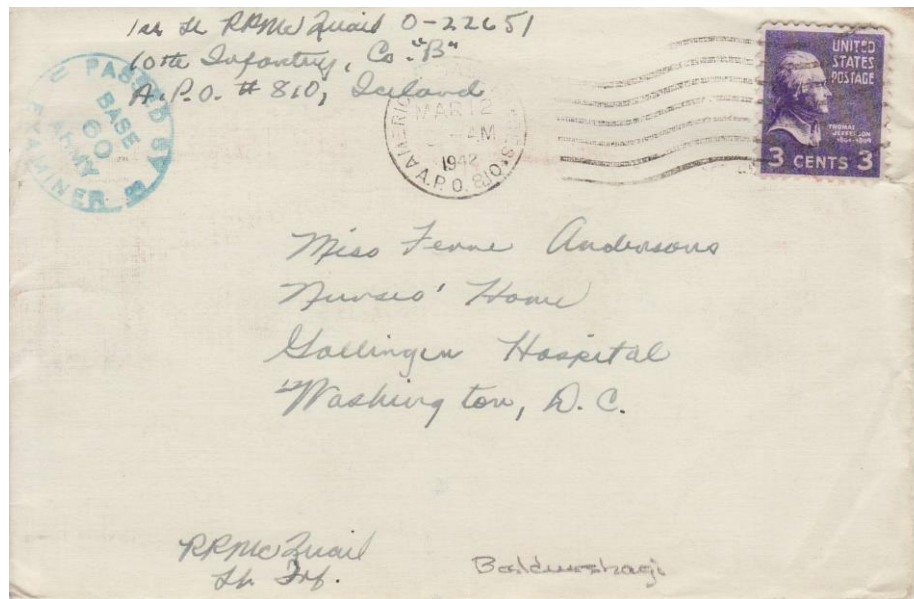 1st Lt RRMcQuaid O-22651
10th Infantry, Co. "B"
A.P.O. # 810, Iceland
PASSED BY
BASE
60
ARMY
EXAMINER
AMERICAN
MAR 12
AM
1942
A.P.O. 810
UNITED
STATES
POSTAGE
THOMAS
JEFFERSON
3 CENTS 3
Miss Ferne Andersons
Nurses' Home
Gallinger Hospital
Washington, D.C.
RRMcQuaid
Lt. Inf.